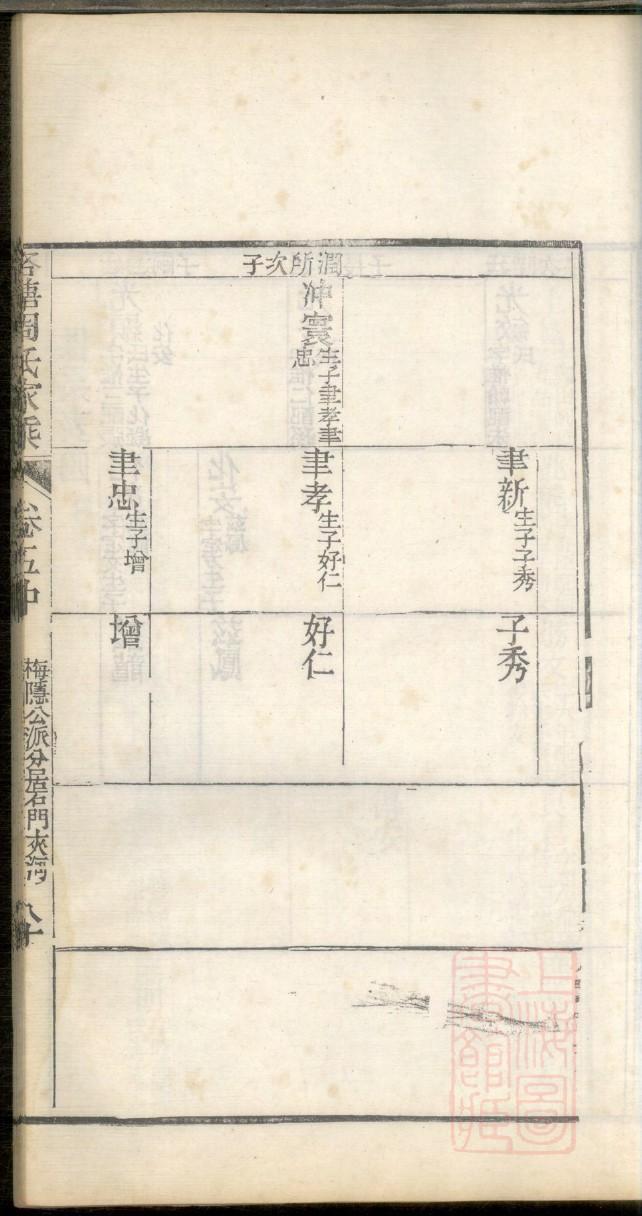 潤所次子
冲寰生子聿孝聿忠
聿新生子子秀
聿孝生子好仁
聿忠生子增
子秀
好仁
增
塘周氏家乘
卷五中
梅隱公派分居石門夾河
八十
上海圖書館藏